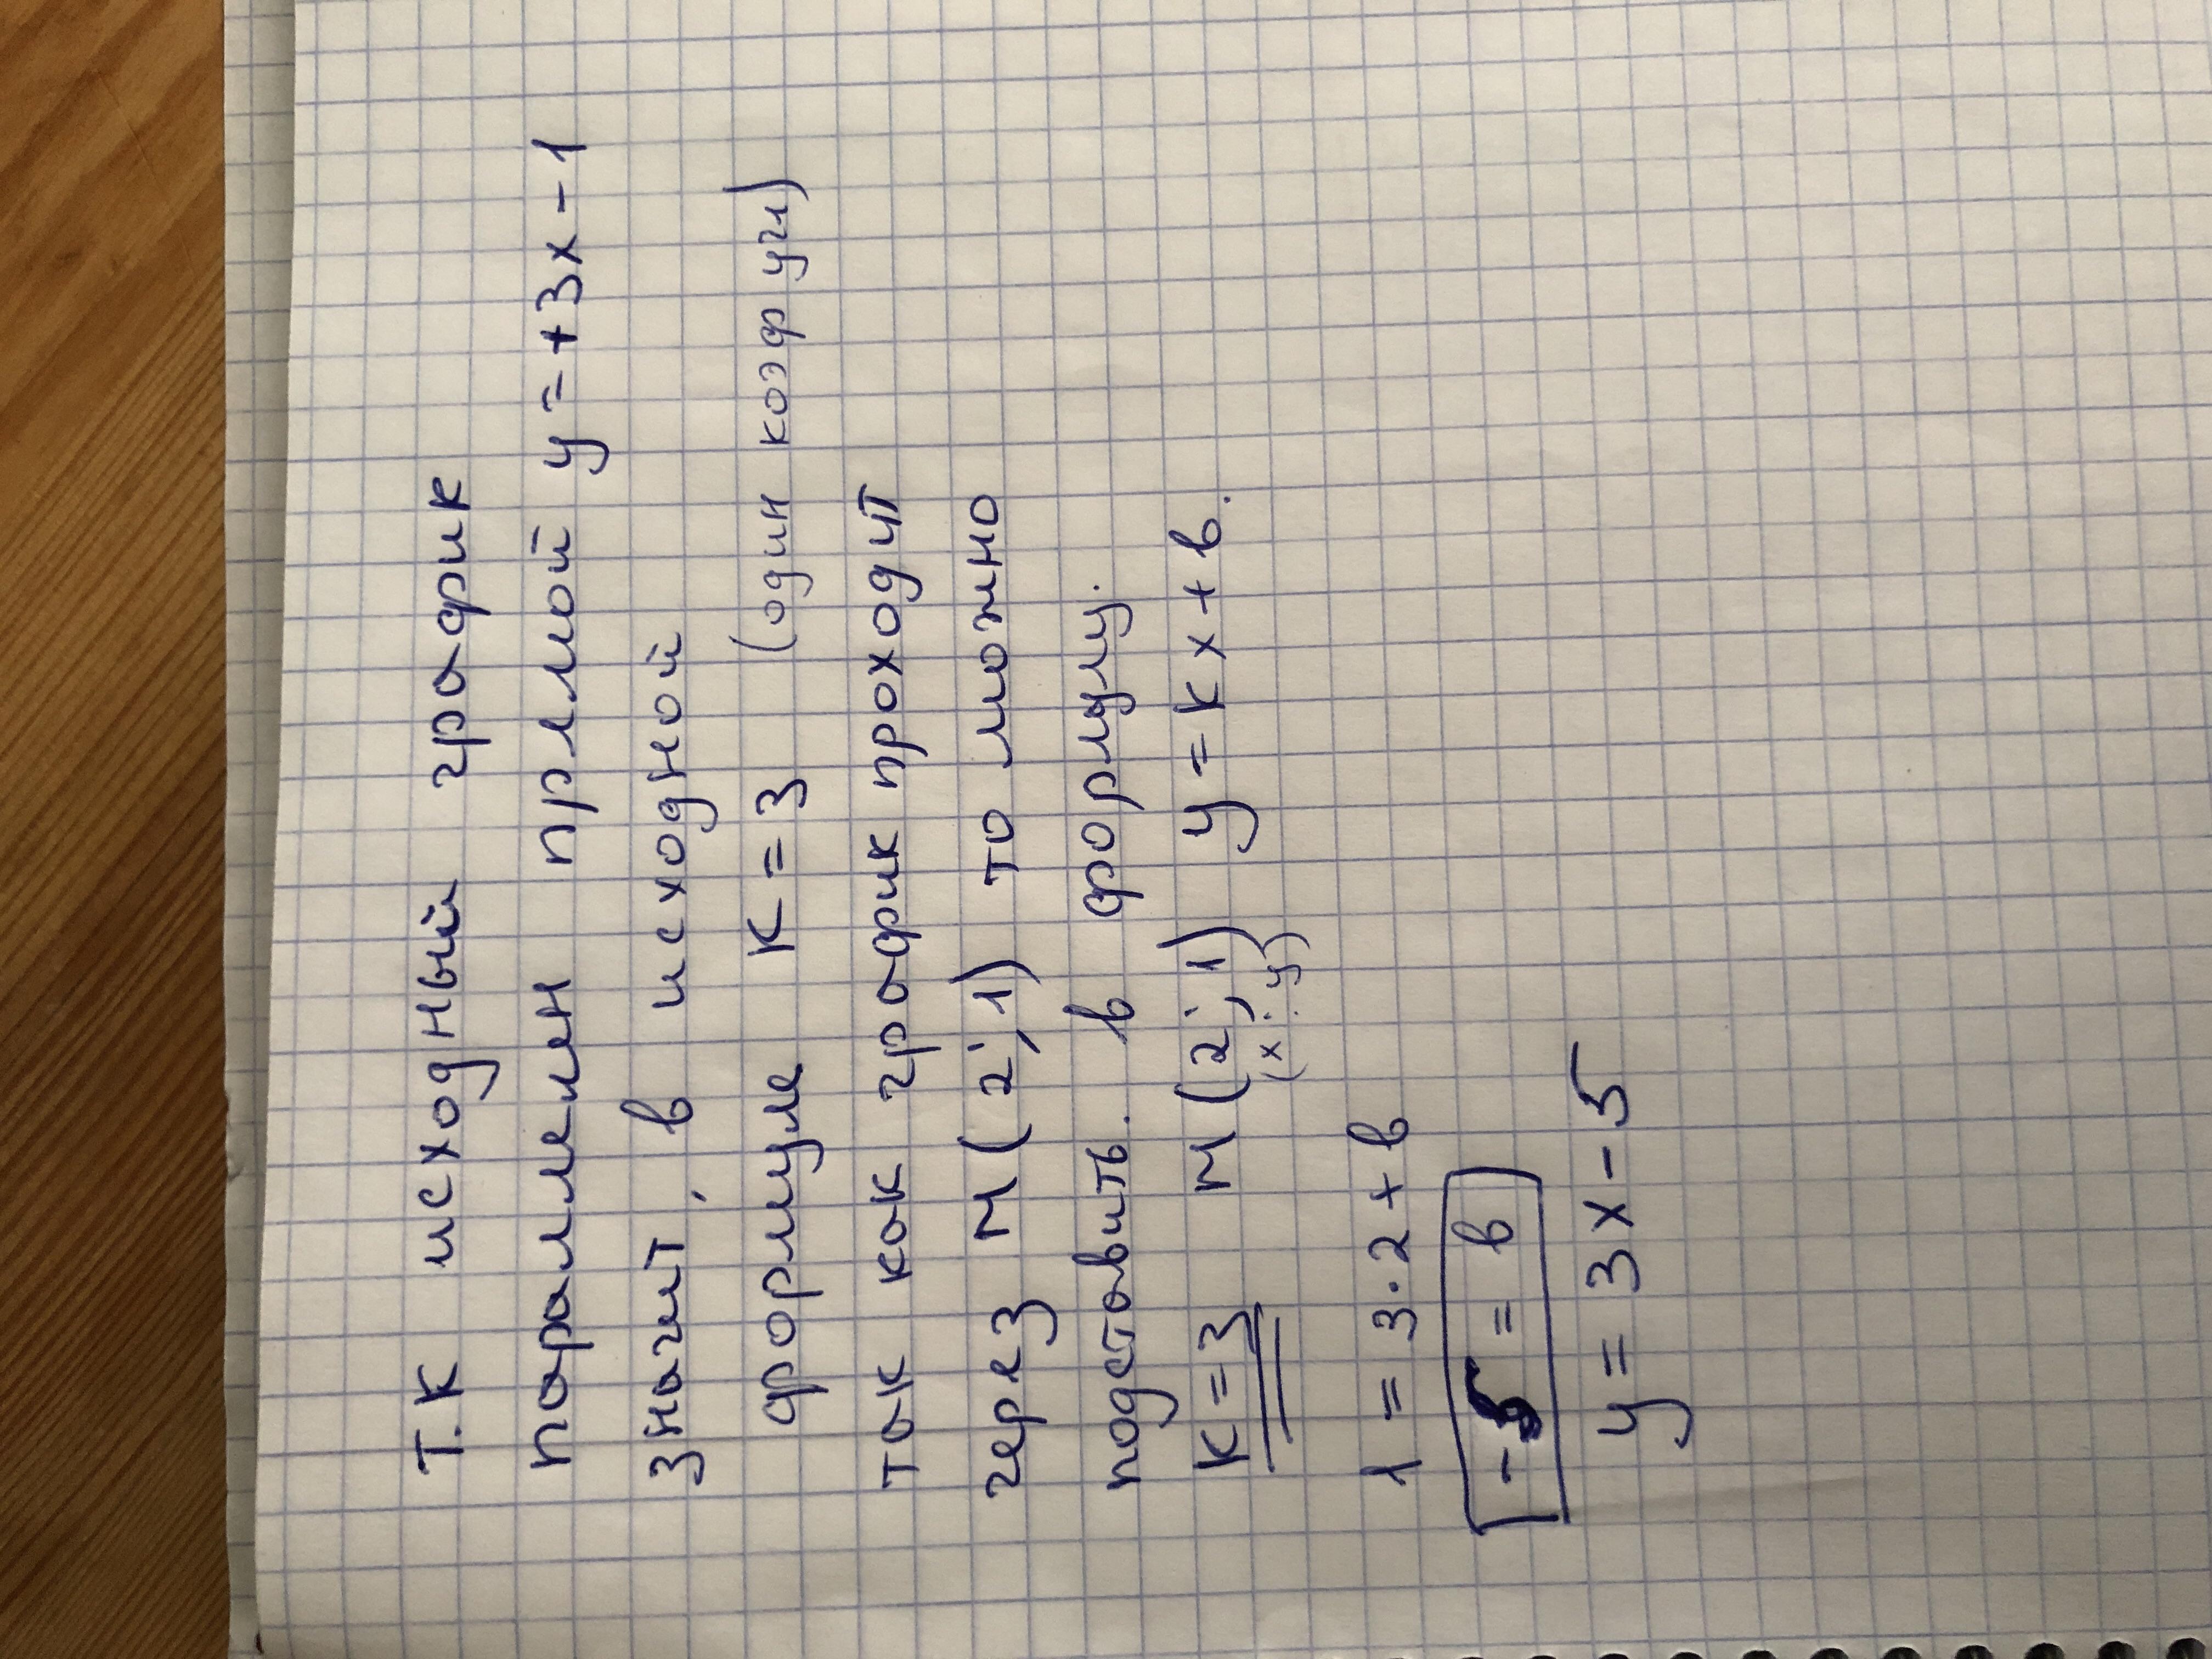 т.к исходный график
паралелен прямой y = +3x - 1
значит, в исходной
формуле к = 3 (один коэф угл)
так как график проходит
через M (2; 1) то можно
подставить. в формулу.
к = 3 M (2; 1) y = кx + в.
(x; y)
1 = 3 · 2 + в
-5 = в
y = 3x - 5